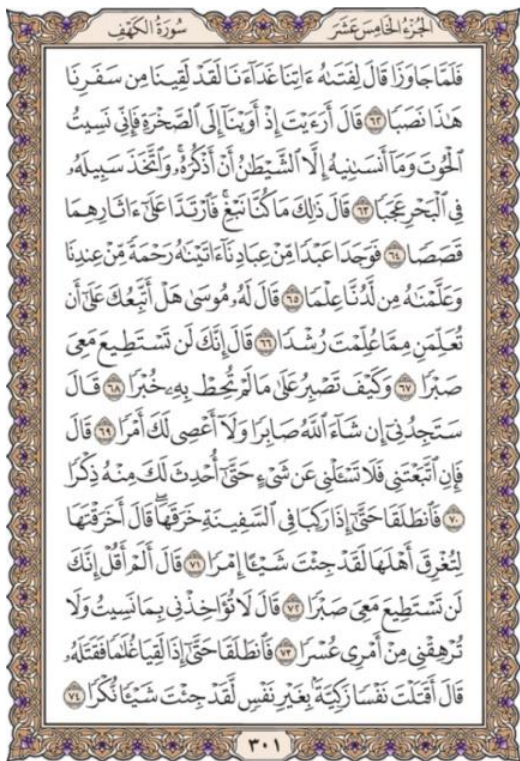 الجُزْءُ الخَامِسَ عَشَرَ
سُورَةُ الكَهْفِ
فَلَمَّا جَاوَزَا قَالَ لِفَتَىٰهُ ءَاتِنَا غَدَآءَنَا لَقَدْ لَقِينَا مِن سَفَرِنَا
هَٰذَا نَصَبًا ٦٢ قَالَ أَرَءَيْتَ إِذْ أَوَيْنَآ إِلَى ٱلصَّخْرَةِ فَإِنِّى نَسِيتُ
ٱلْحُوتَ وَمَآ أَنسَىٰنِيهُ إِلَّا ٱلشَّيْطَٰنُ أَنْ أَذْكُرَهُۥ وَٱتَّخَذَ سَبِيلَهُۥ
فِى ٱلْبَحْرِ عَجَبًا ٦٣ قَالَ ذَٰلِكَ مَا كُنَّا نَبْغِ فَٱرْتَدَّا عَلَىٰٓ ءَاثَارِهِمَا
قَصَصًا ٦٤ فَوَجَدَا عَبْدًا مِّنْ عِبَادِنَآ ءَاتَيْنَٰهُ رَحْمَةً مِّنْ عِندِنَا
وَعَلَّمْنَٰهُ مِن لَّدُنَّا عِلْمًا ٦٥ قَالَ لَهُۥ مُوسَىٰ هَلْ أَتَّبِعُكَ عَلَىٰٓ أَن
تُعَلِّمَنِ مِمَّا عُلِّمْتَ رُشْدًا ٦٦ قَالَ إِنَّكَ لَن تَسْتَطِيعَ مَعِىَ
صَبْرًا ٦٧ وَكَيْفَ تَصْبِرُ عَلَىٰ مَا لَمْ تُحِطْ بِهِۦ خُبْرًا ٦٨ قَالَ
سَتَجِدُنِىٓ إِن شَآءَ ٱللَّهُ صَابِرًا وَلَآ أَعْصِى لَكَ أَمْرًا ٦٩ قَالَ
فَإِنِ ٱتَّبَعْتَنِى فَلَا تَسْـَٔلْنِى عَن شَىْءٍ حَتَّىٰٓ أُحْدِثَ لَكَ مِنْهُ ذِكْرًا
٧٠ فَٱنطَلَقَا حَتَّىٰٓ إِذَا رَكِبَا فِى ٱلسَّفِينَةِ خَرَقَهَا ۖ قَالَ أَخَرَقْتَهَا
لِتُغْرِقَ أَهْلَهَا لَقَدْ جِئْتَ شَيْـًٔا إِمْرًا ٧١ قَالَ أَلَمْ أَقُلْ إِنَّكَ
لَن تَسْتَطِيعَ مَعِىَ صَبْرًا ٧٢ قَالَ لَا تُؤَاخِذْنِى بِمَا نَسِيتُ وَلَا
تُرْهِقْنِى مِنْ أَمْرِى عُسْرًا ٧٣ فَٱنطَلَقَا حَتَّىٰٓ إِذَا لَقِيَا غُلَٰمًا فَقَتَلَهُۥ
قَالَ أَقَتَلْتَ نَفْسًا زَكِيَّةًۢ بِغَيْرِ نَفْسٍ لَّقَدْ جِئْتَ شَيْـًٔا نُّكْرًا ٧٤
٣٠١